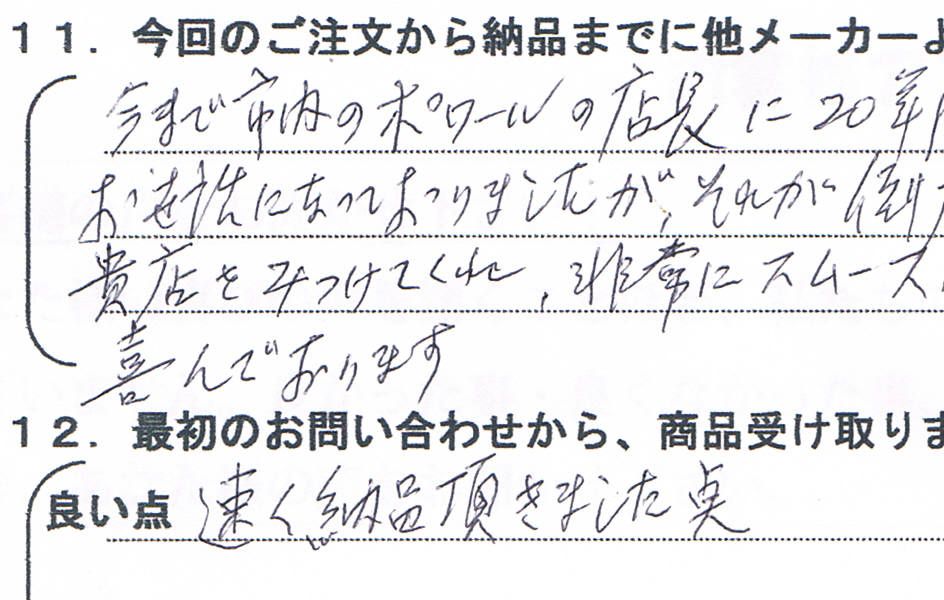 11. 今回のご注文から納品までに他メーカーよ
今まで市内のポワールの店長に20年
お世話になっておりましたが、それが倒
貴店をみつけてくれ、非常にスムース
喜んでおります
12. 最初のお問い合わせから、商品受け取りま
良い点 速く納品頂きました点